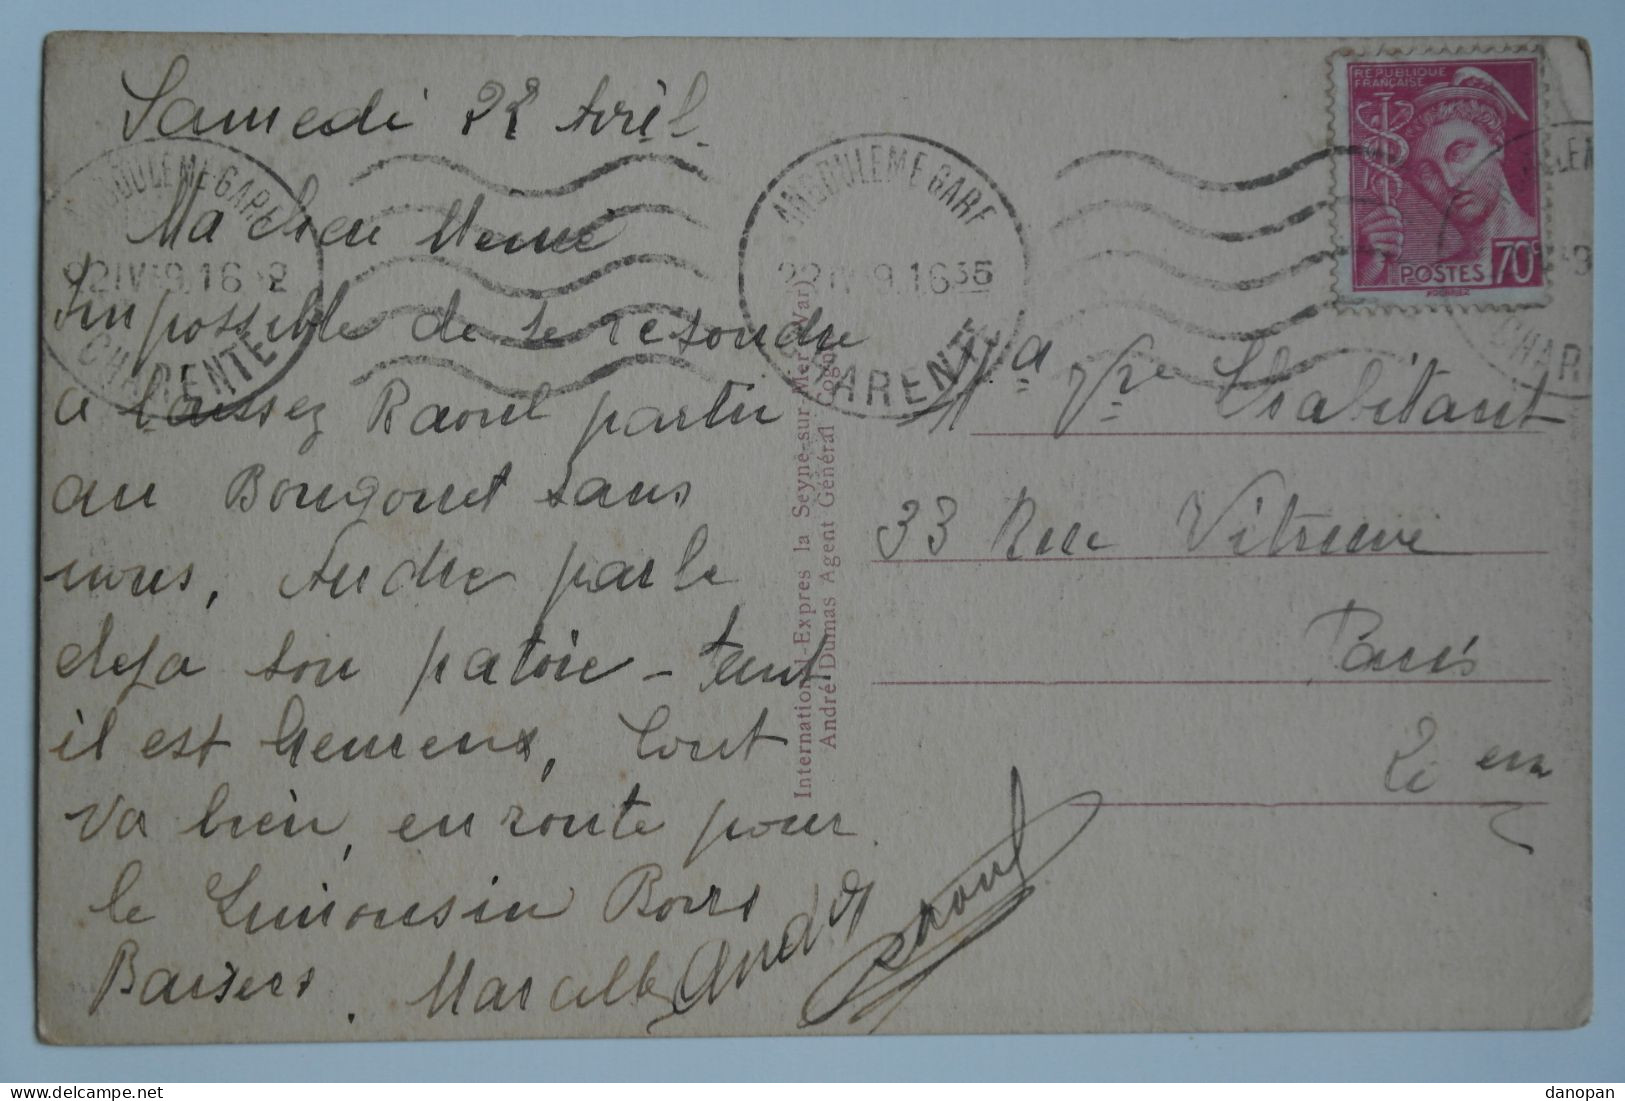 Samedi 22 Avril
Ma cher Meme
Impossible de se resoudre
a laissez Raoul partir
au Bougouet sans
nous, Andre parle
deja son patois - tant
il est heureux, tout
va bien, en route pour
le Limousin Bons
Baisers. Marcelle André Raoul
Vve Chabitant
33 Rue Vitruve
Paris
ANGOULEME GARE
22 IV 39 16
CHARENTE
ANGOULEME GARE
22 IV 39 16 35
CHARENTE
REPUBLIQUE
FRANÇAISE
POSTES
70c
International-Expres la Seyne-sur-Mer (Var)
André Dumas Agent Général Cognac
delcampe.net
danopan